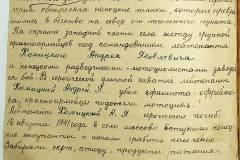 При обстрелянии немецкие танки, которые
лись в бегство на север от населенного пункта
На окраине западной части села между группой
красноармейцев под командованием лейтенанта
Холицкого Андрея Яковлевича
и немецкими разведчиками-мотоциклистами завязал
ся бой. В героической схватке лейтенант
Холицкий Андрей Я. убил офицера-
красноармейцы подожгли мотоцикл.
Лейтенант Холицкий А. Я. героически погиб.
16 августа 1941 года в село массово вступили немец
кие оккупанты и начали грабить население
Забирали скот, птицу, продукты питания.